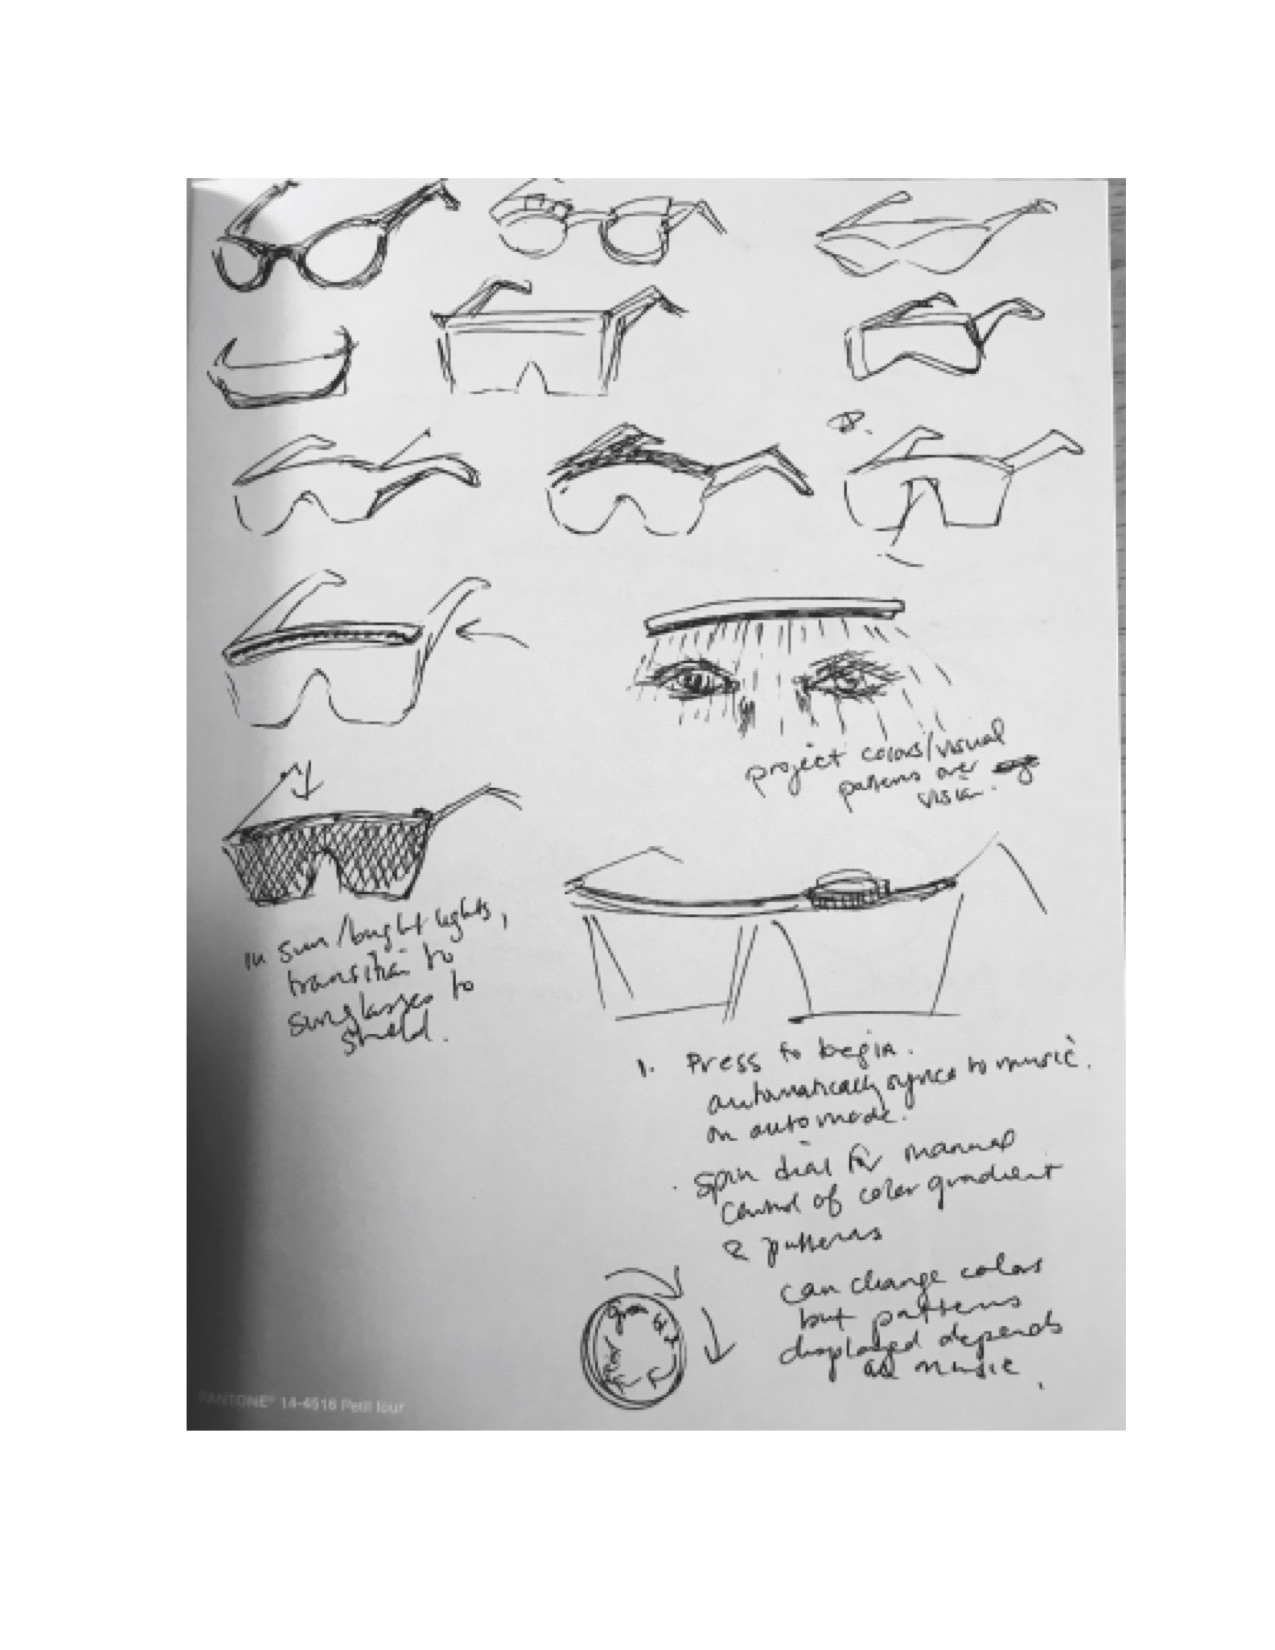 project colors/visual
patterns over
vision.
in sun/bright lights,
transition to
sunglasses to
shield.
1. Press to begin.
automatically syncs to music.
on auto mode.
. Spin dial for manual
control of color gradient
& patterns
can change colors
but patterns
displayed depends
on music.
green
PANTONE® 14-4516 Petit four